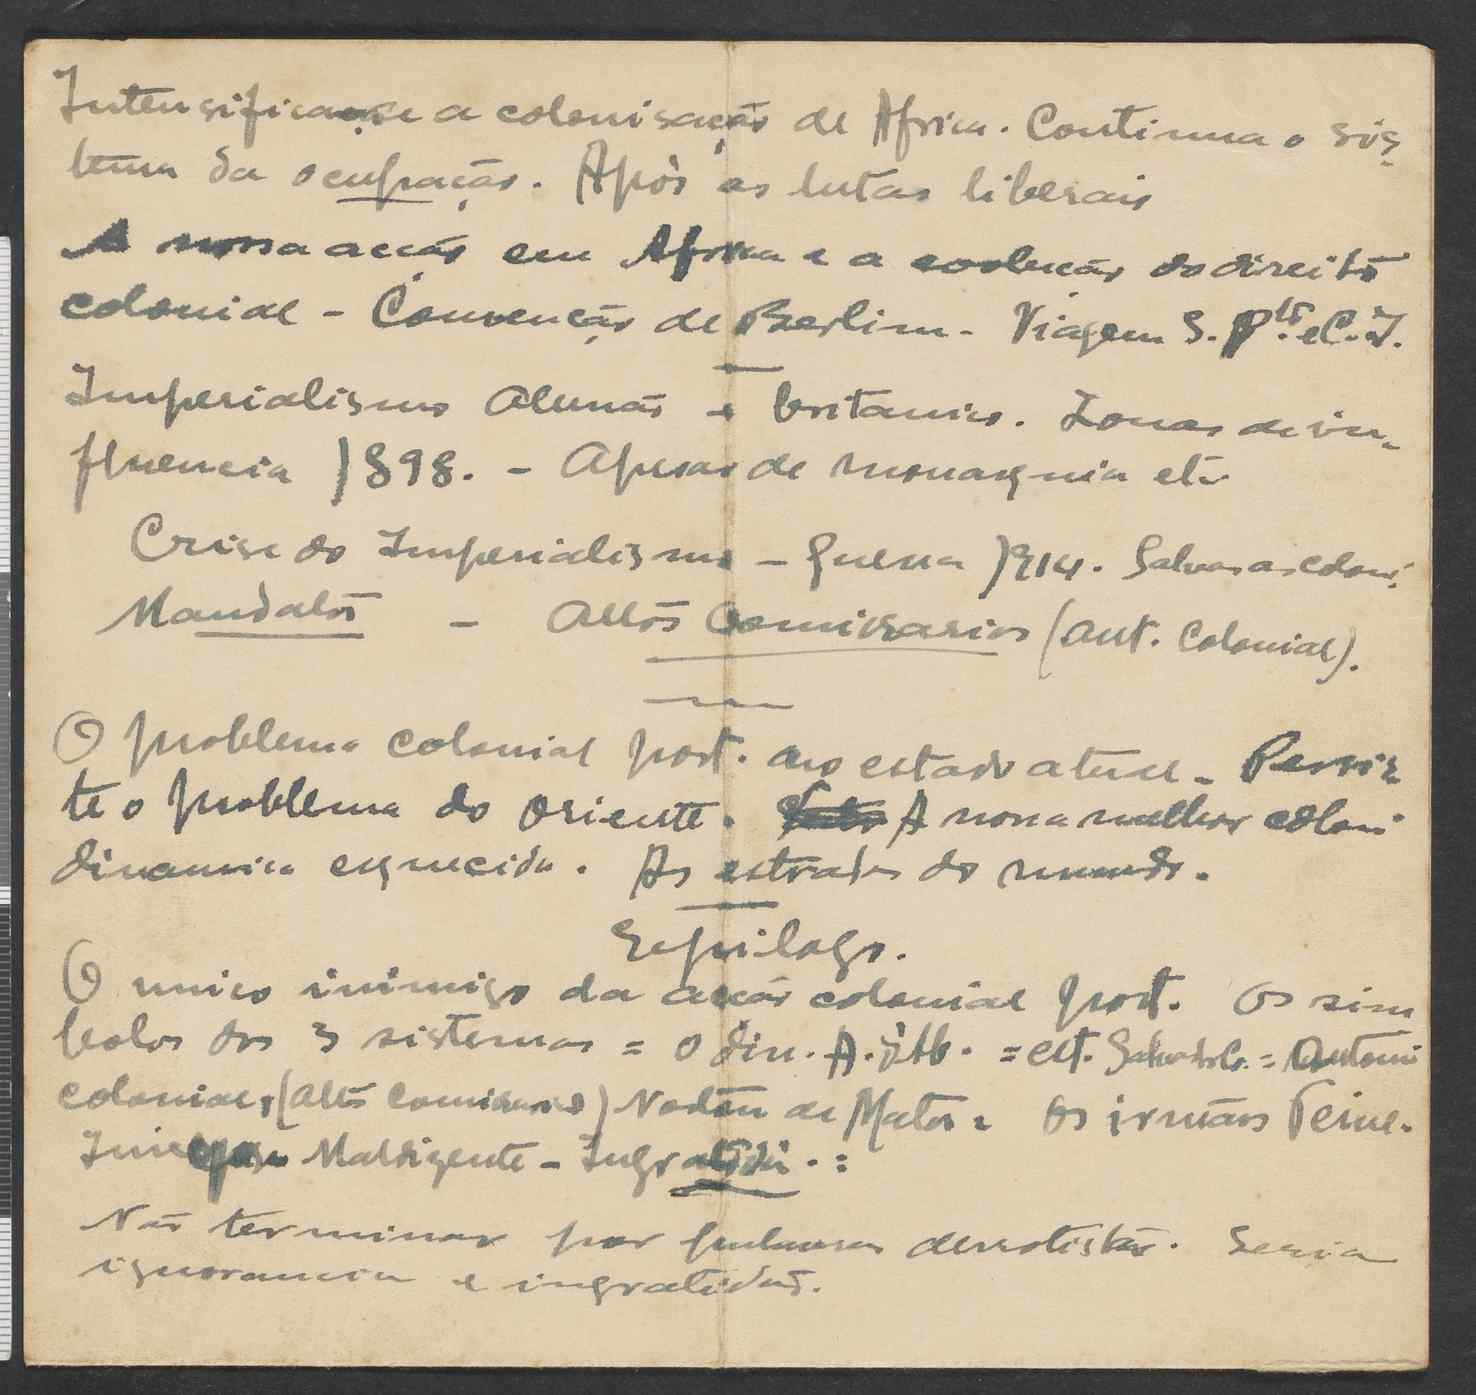 Intensifica-se a colonisação de Africa. Continua o sis-
tema da ocupação. Após as lutas liberais
A nossa acção em Africa e a evolução do direito
colonial - Convenção de Berlim - Viagem S. Pto. e C. I.
Imperialismo Alemão e britanico. Zonas de in-
fluencia 1898. - Apesar de monarquia etc
Crise do Imperialismo - Guerra 1914. Salvar as coloni.
Mandatos - Altos Comissarios (Aut. Colonial).
O problema colonial port. no estado atual - Persis
te o problema do Oriente. A nossa melhor coloni
dinamica esquecida. As estradas do mundo.
Epilogo.
O unico inimigo da acção colonial port. Os sim
bolos dos 3 sistemas = O din. A. Alb. = Est. Salvador C. = Autonomi
colonial, (Alto Comissario) Norton de Matos = Os irmãos
Maldizente - Ingratidão. =
Não terminar por palavras derrotistas. Seria
ignorancia e ingratidão.